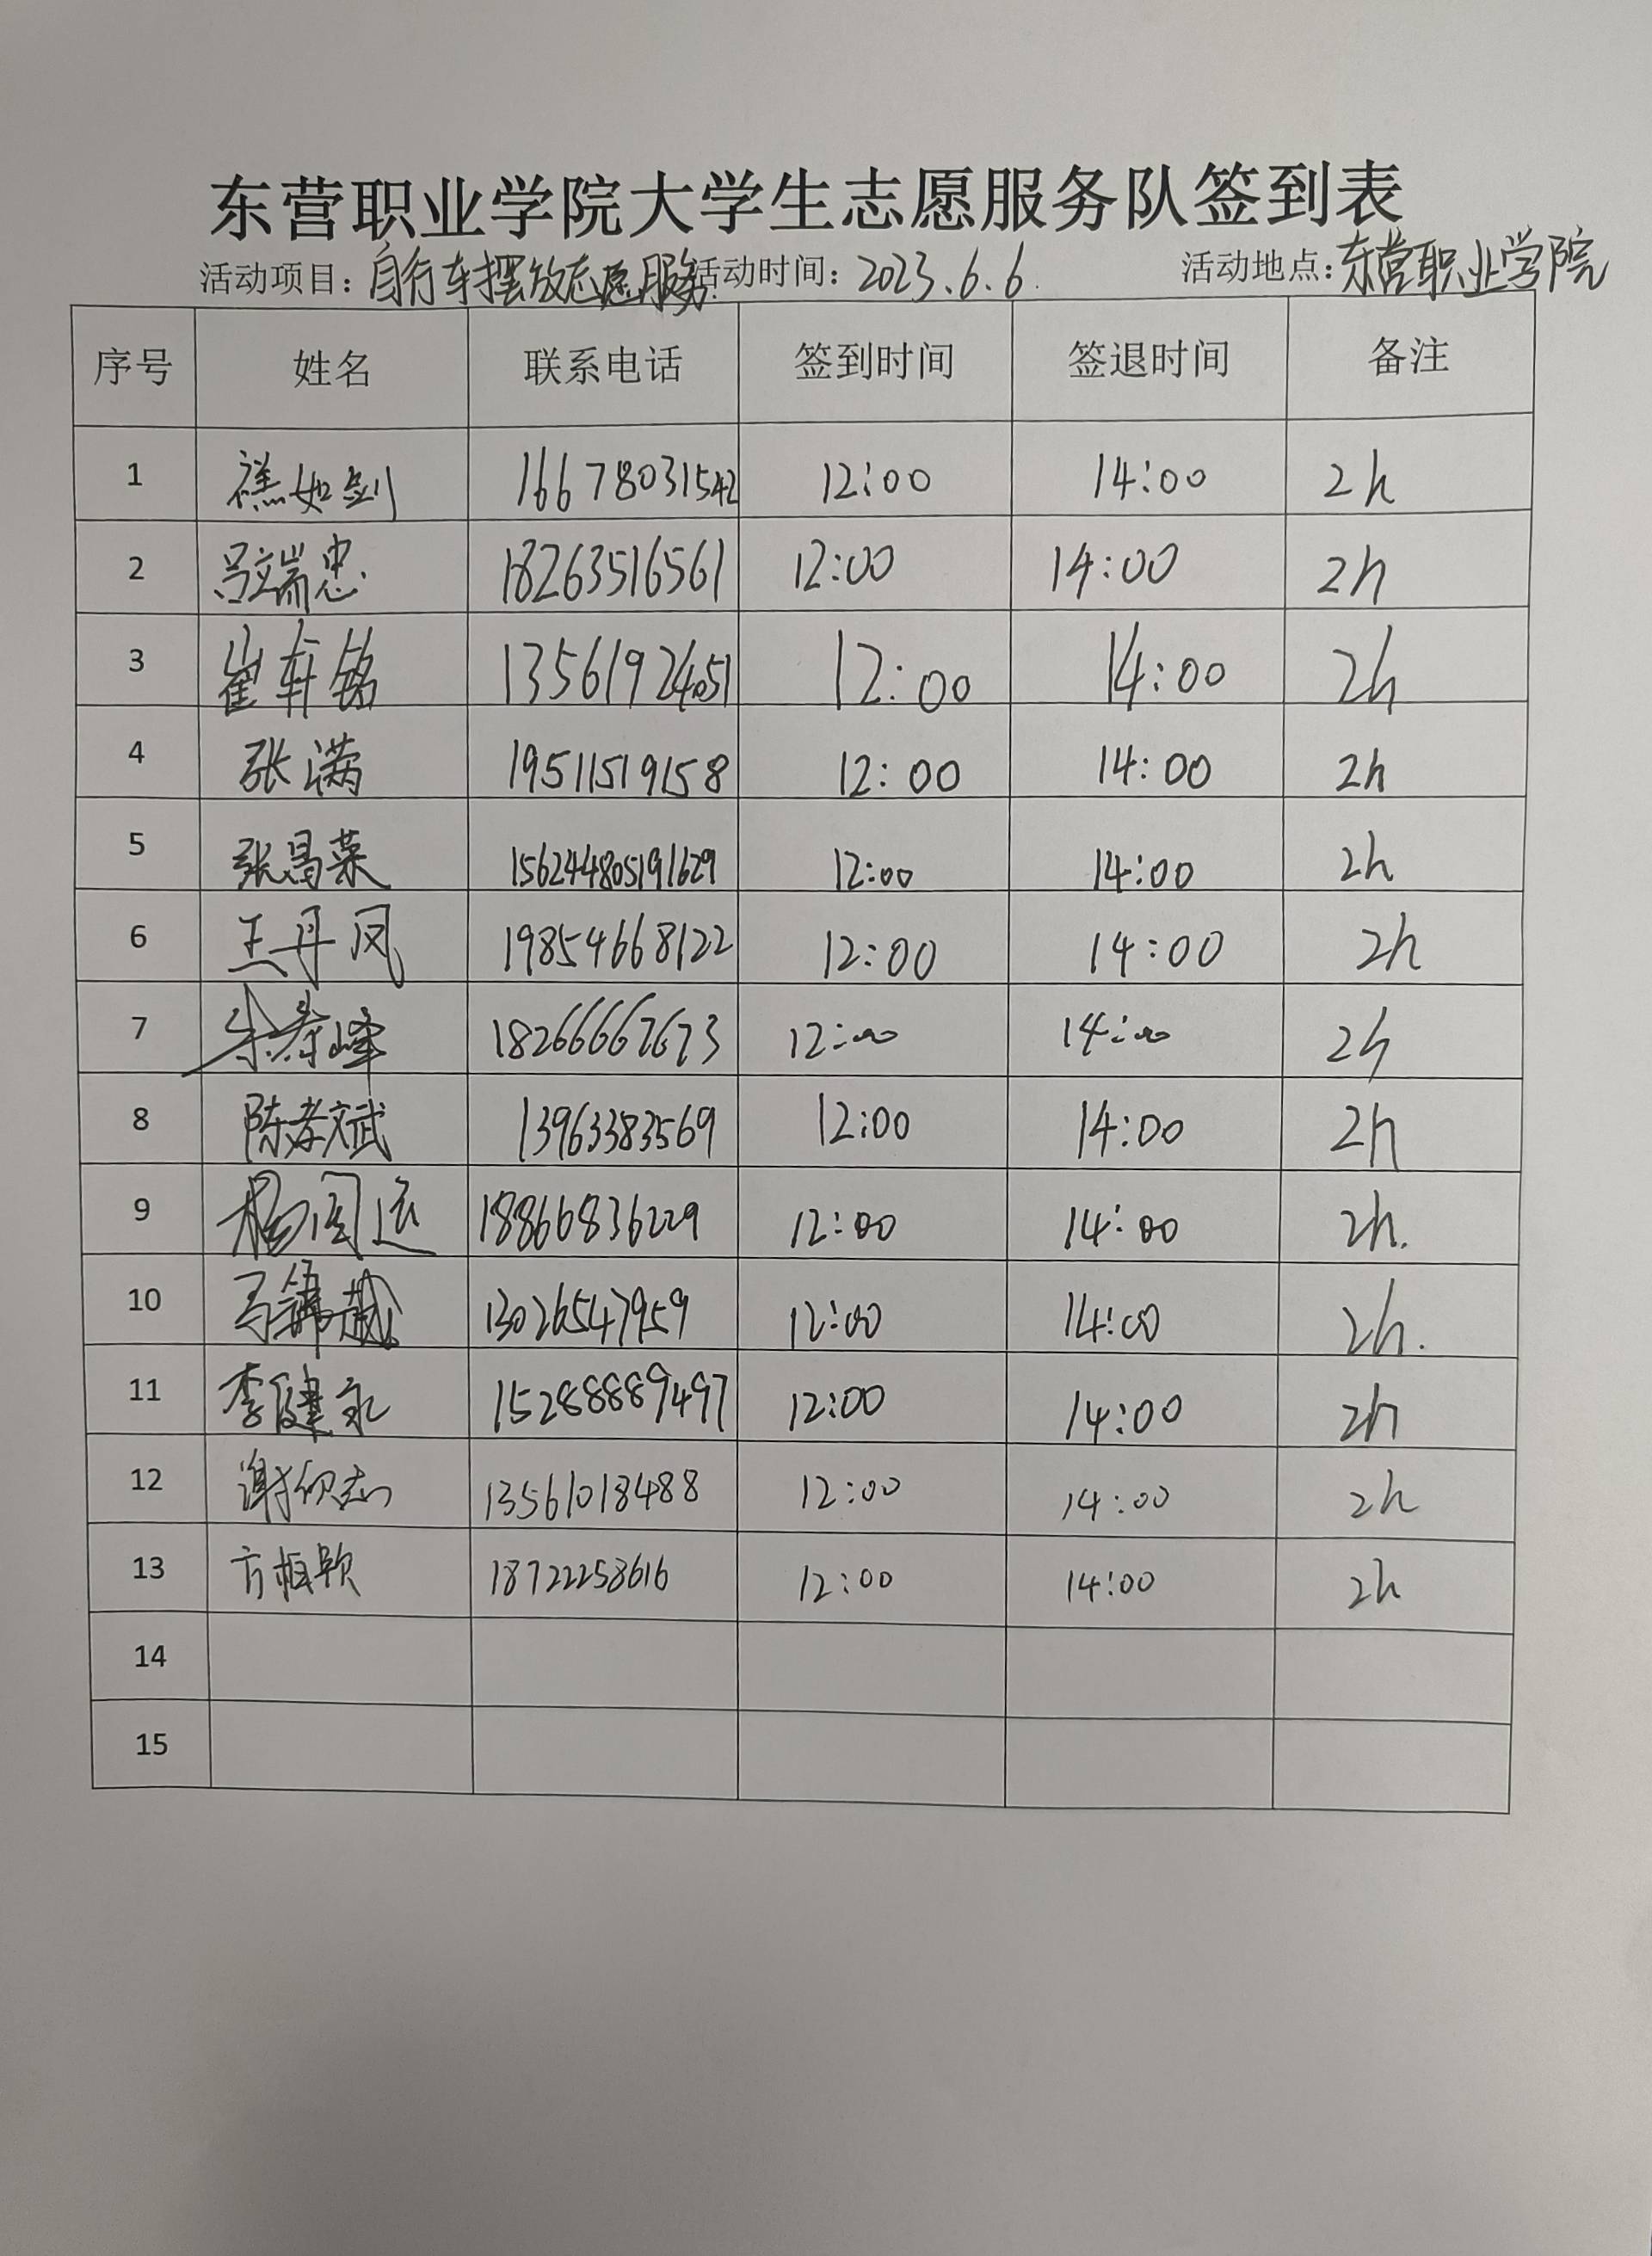 东营职业学院大学生志愿服务队签到表
活动项目：自行车摆放志愿服务 活动时间：2023.6.6. 活动地点：东营职业学院
序号 姓名 联系电话 签到时间 签退时间 备注
1 禚如剑 16678031542 12:00 14:00 2h
2 吕端忠 18263516561 12:00 14:00 2h
3 崔轩铭 13561924051 12:00 14:00 2h
4 张满 19511519158 12:00 14:00 2h
5 张昌荣 12:00 14:00 2h
6 王丹凤 19854668122 12:00 14:00 2h
7 12:00 14:00 2h
8 陈孝斌 13963383569 12:00 14:00 2h
9 杨闰运 18866836229 12:00 14:00 2h.
10 13026547959 12:00 14:00 2h.
11 李健永 15288889497 12:00 14:00 2h
12 13561018488 12:00 14:00 2h
13 18722258616 12:00 14:00 2h
14
15